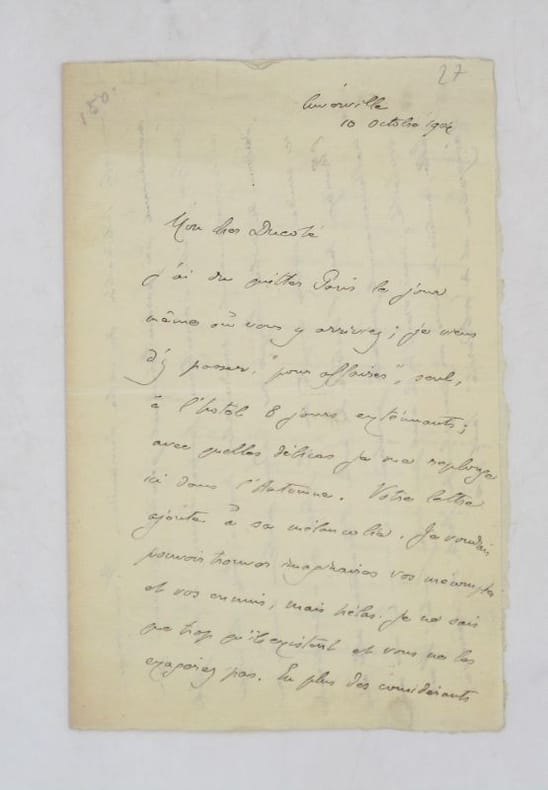 27
150.
Cuverville
10 Octobre 190
Mon cher Ducoté
j'ai du quitter Paris le jour
même où vous y arriviez ; je viens
d'y passer, "pour affaires", seul,
à l'hôtel 8 jours exténuants ;
avec quelles délices je me replonge
ici dans l'Automne. Votre lettre
ajoute à sa mélancolie. Je voudrais
pouvoir trouver imaginaires vos mécomptes
et vos ennuis, mais hélas. Je ne sais
que trop qu'ils existent et vous ne les
exagérez pas. En plus des considérants